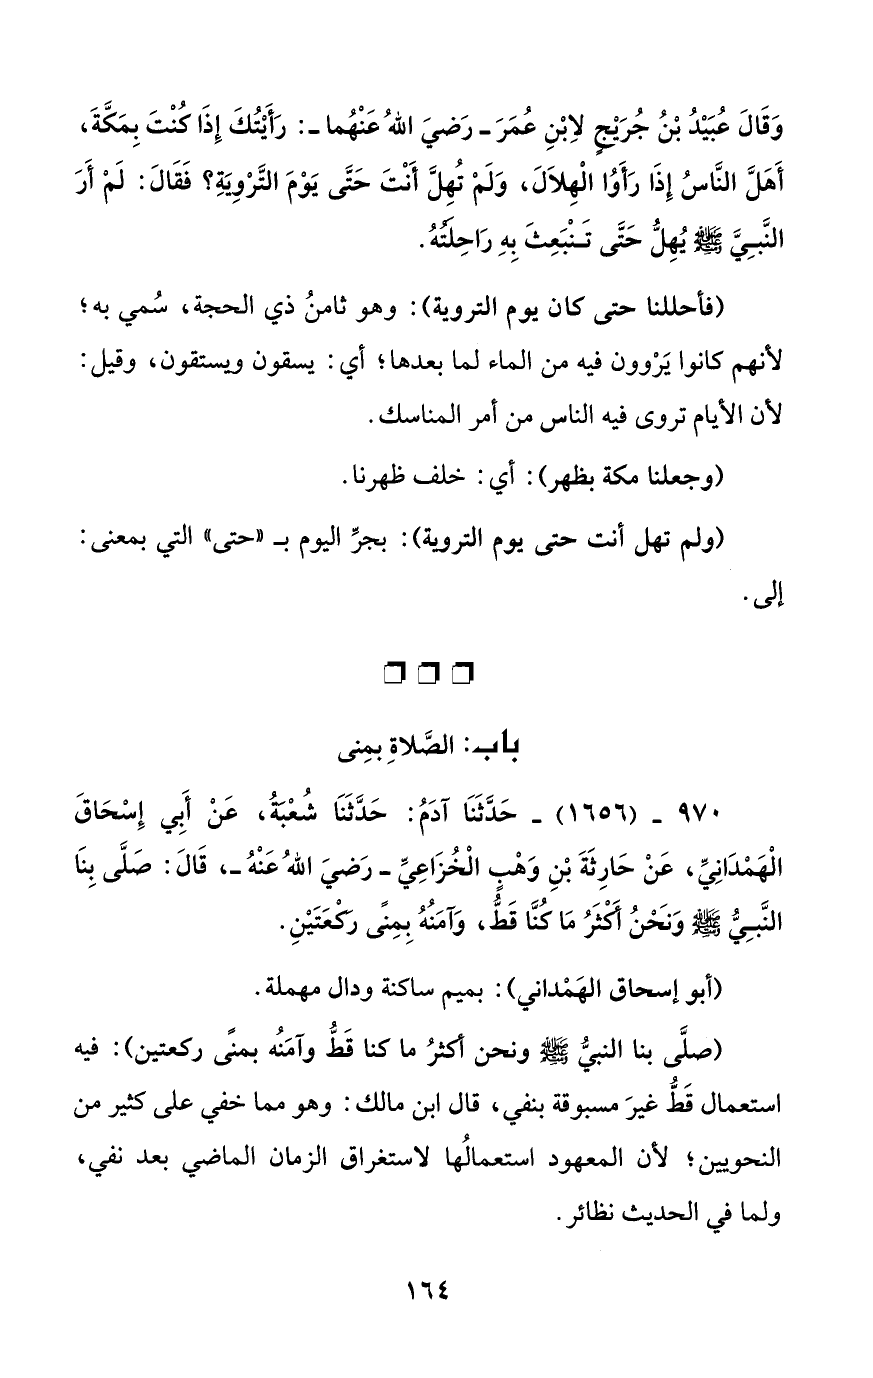 وَقَالَ عُبَيْدُ بْنُ جُرَيْجٍ لاِبْنِ عُمَرَ ـ رَضيَ اللهُ عَنْهُما ـ: رَأَيْتُكَ إِذَا كُنْتَ بِمَكَّةَ،
أَهَلَّ النَّاسُ إِذَا رَأَوُا الْهِلاَلَ، وَلَمْ تُهِلَّ أَنْتَ حَتَّى يَوْمَ التَّرْوِيَةِ؟ فَقَالَ: لَمْ أَرَ
النَّبِيَّ ﷺ يُهِلُّ حَتَّى تَنْبَعِثَ بِهِ رَاحِلَتُهُ.
(فأحللنا حتى كان يوم التروية): وهو ثامنُ ذي الحجة، سُمي به؛
لأنهم كانوا يَرْوون فيه من الماء لما بعدها؛ أي: يسقون ويستقون، وقيل:
لأن الأيام تروى فيه الناس من أمر المناسك.
(وجعلنا مكة بظهر): أي: خلف ظهرنا.
(ولم تهل أنت حتى يوم التروية): بجرِّ اليوم بـ «حتى» التي بمعنى:
إلى.
باب: الصَّلاةِ بمِنى
٩٧٠ ـ (١٦٥٦) ـ حَدَّثَنَا آدَمُ: حَدَّثَنَا شُعْبَةُ، عَنْ أَبِي إِسْحَاقَ
الْهَمْدَانِيِّ، عَنْ حَارِثَةَ بْنِ وَهْبٍ الْخُزَاعِيِّ ـ رَضيَ اللهُ عَنْهُ ـ، قَالَ: صَلَّى بِنَا
النَّبِيُّ ﷺ وَنَحْنُ أَكْثَرُ مَا كُنَّا قَطُّ، وَآمَنُهُ بِمِنًى رَكْعَتَيْنِ.
(أبو إسحاق الهَمْداني): بميم ساكنة ودال مهملة.
(صلَّى بنا النبيُّ ﷺ ونحن أكثرُ ما كنا قَطُّ وآمَنُه بمنًى ركعتين): فيه
استعمال قَطُّ غيرَ مسبوقة بنفي، قال ابن مالك: وهو مما خفي على كثير من
النحويين؛ لأن المعهود استعمالُها لاستغراق الزمان الماضي بعد نفي،
ولما في الحديث نظائر.
١٦٤